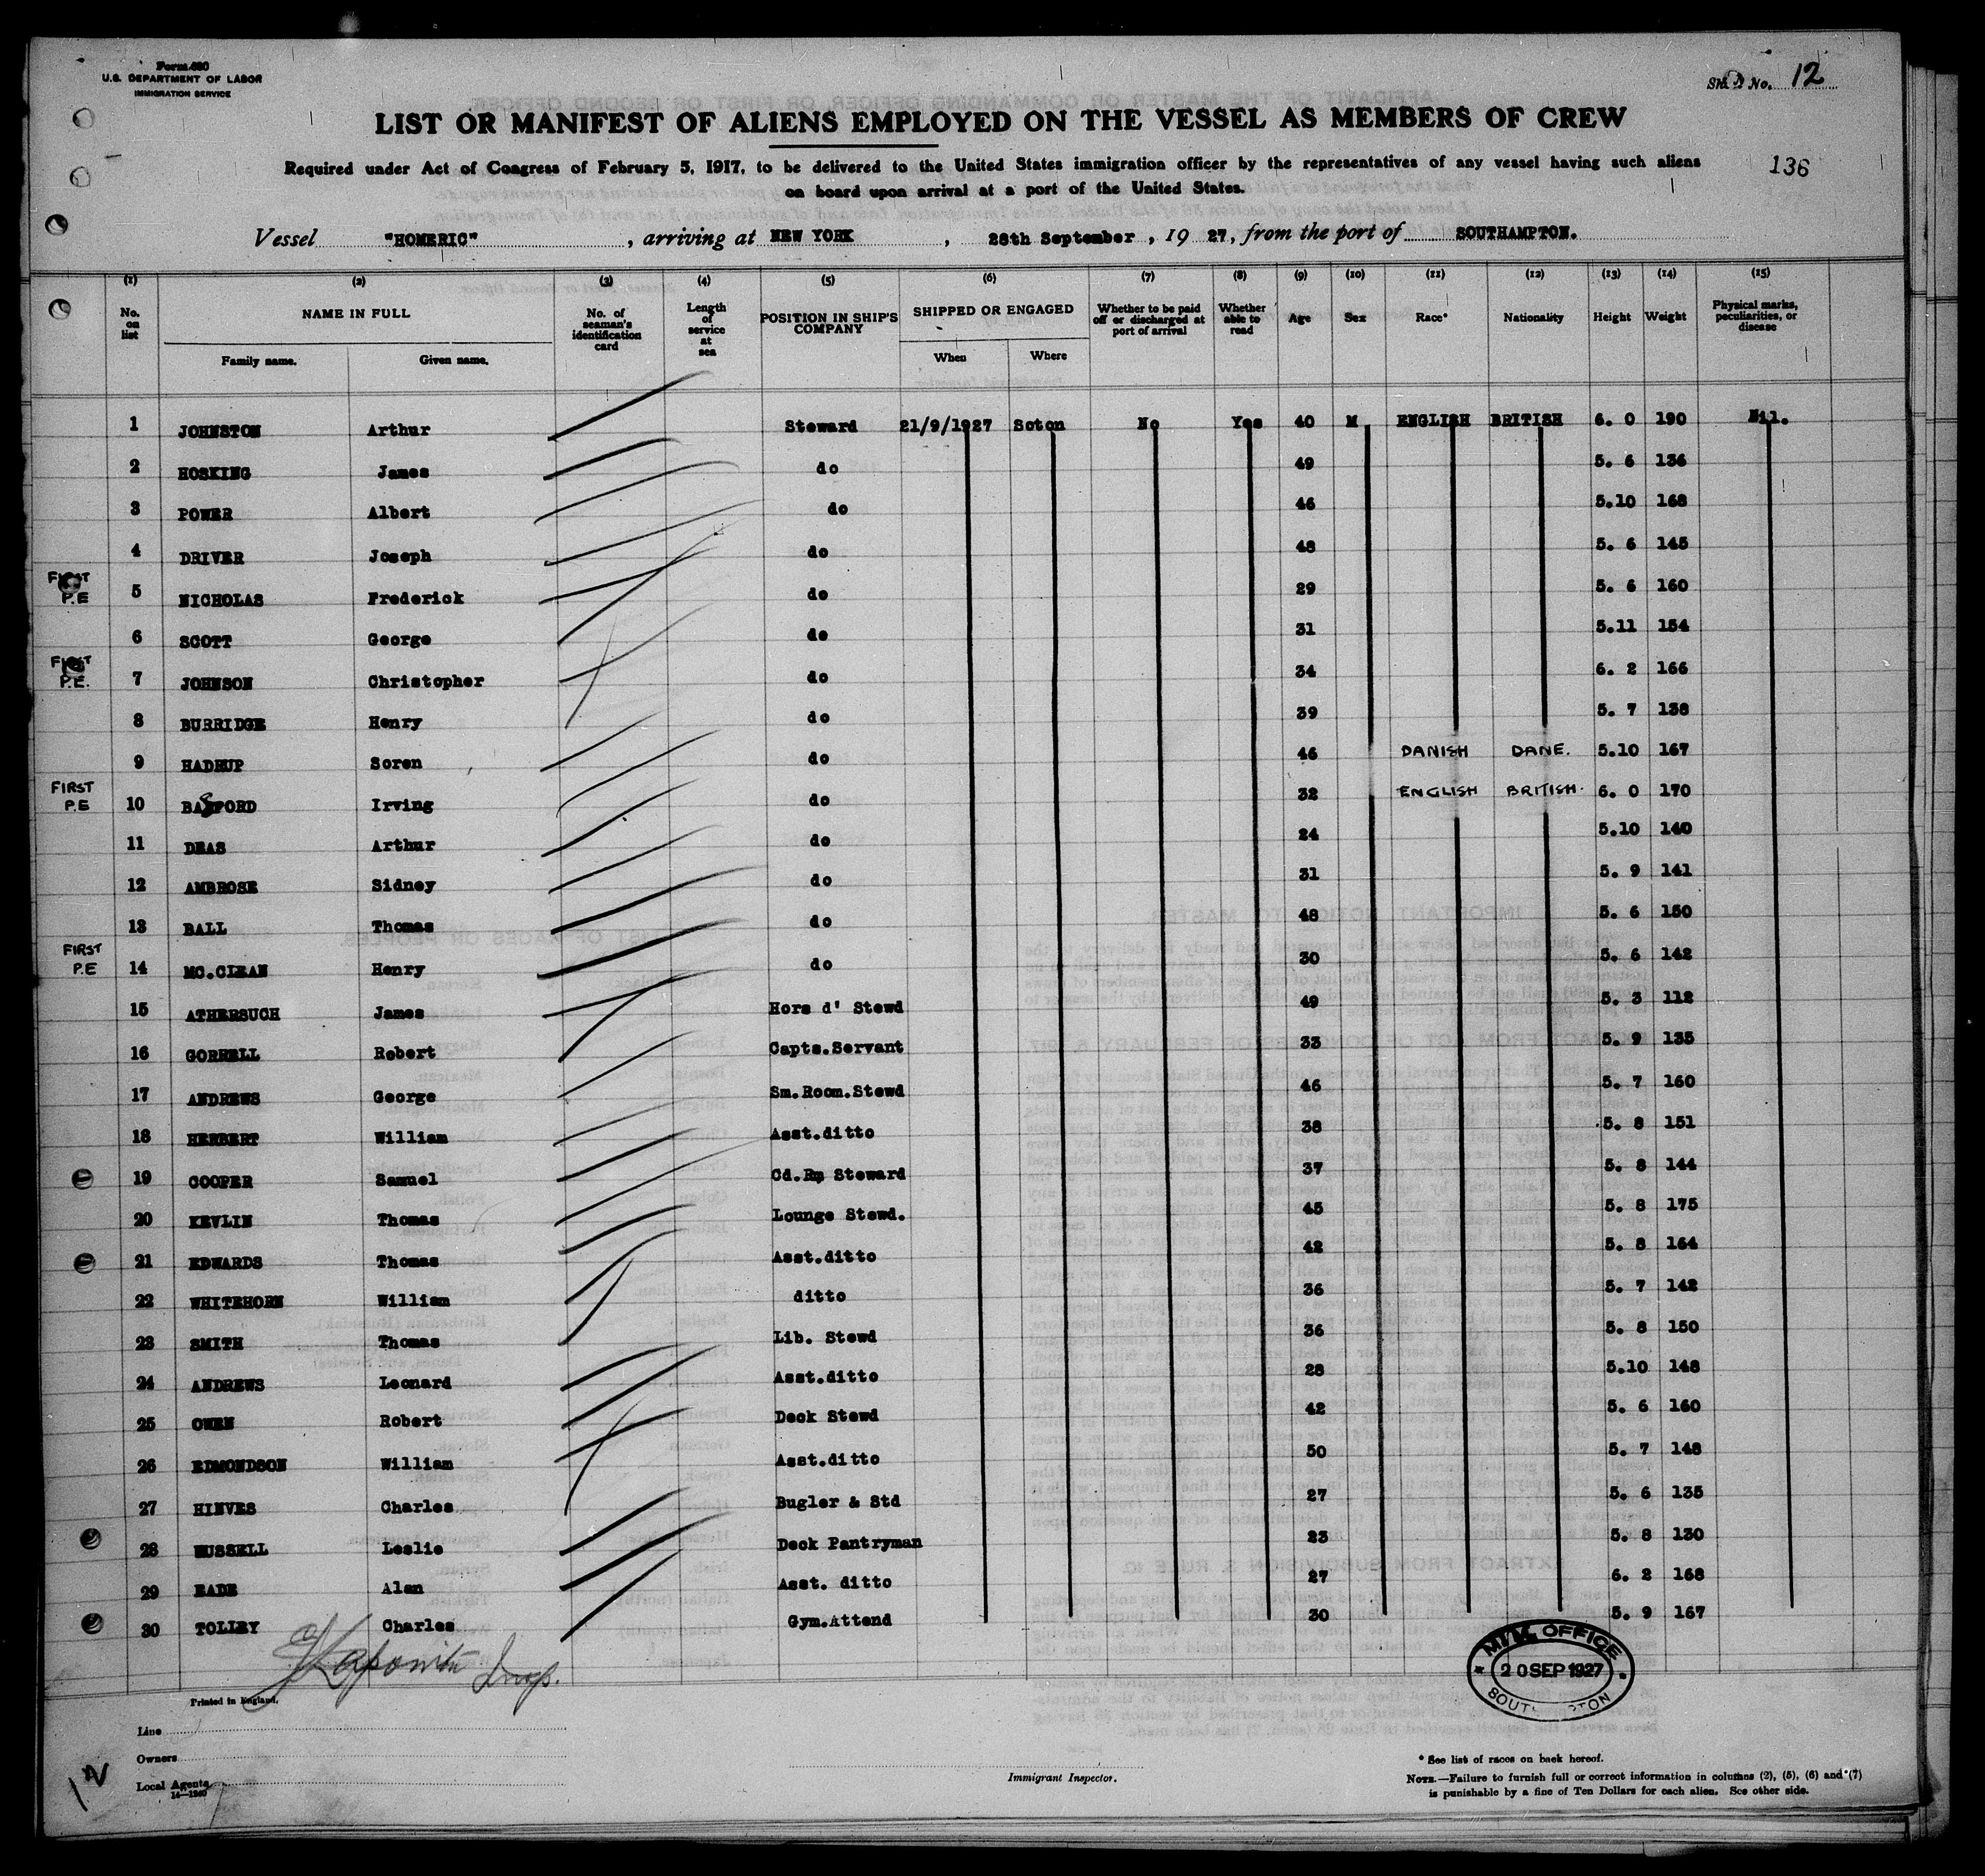 Form 680
U.S. DEPARTMENT OF LABOR
IMMIGRATION SERVICE
No. 12
LIST OR MANIFEST OF ALIENS EMPLOYED ON THE VESSEL AS MEMBERS OF CREW
Required under Act of Congress of February 5, 1917, to be delivered to the United States immigration officer by the representatives of any vessel having such aliens
on board upon arrival at a port of the United States.
136
Vessel "HOMERIC", arriving at NEW YORK, 28th September, 1927, from the port of SOUTHAMPTON.
(1) (2) (3) (4) (5) (6) (7) (8) (9) (10) (11) (12) (13) (14) (15)
No. on list NAME IN FULL Family name. Given name. No. of seaman's identification card Length of service at sea POSITION IN SHIP'S COMPANY SHIPPED OR ENGAGED When Where Whether to be paid off or discharged at port of arrival Whether able to read Age Sex Race* Nationality Height Weight Physical marks, peculiarities, or disease
1 JOHNSTON Arthur Steward 21/9/1927 Soton No Yes 40 M ENGLISH BRITISH 6. 0 190 Nil.
2 HOSKING James do 49 5. 6 136
3 POWER Albert do 46 5.10 168
4 DRIVER Joseph do 48 5. 6 145
FIRST P.E 5 NICHOLAS Frederick do 29 5. 6 160
6 SCOTT George do 31 5.11 154
FIRST P.E. 7 JOHNSON Christopher do 34 6. 2 166
8 BURRIDGE Henry do 39 5. 7 138
9 HADRUP Soren do 46 DANISH DANE. 5.10 167
FIRST P.E 10 BASFORD Irving do 32 ENGLISH BRITISH. 6. 0 170
11 DEAS Arthur do 24 5.10 140
12 AMBROSE Sidney do 31 5. 9 141
13 BALL Thomas do 48 5. 6 150
FIRST P.E 14 MC.CLEAN Henry do 30 5. 6 142
15 ATHERSUCH James Hors d' Stewd 49 5. 3 112
16 GORRELL Robert Capts.Servant 33 5. 9 135
17 ANDREWS George Sm.Room.Stewd 46 5. 7 160
18 HERBERT William Asst.ditto 38 5. 8 151
19 COOPER Samuel Cd.Rm Steward 37 5. 8 144
20 KEVLIN Thomas Lounge Stewd. 45 5. 8 175
21 EDWARDS Thomas Asst.ditto 42 5. 8 164
22 WHITEHORN William ditto 36 5. 7 142
23 SMITH Thomas Lib. Stewd 36 5. 8 150
24 ANDREWS Leonard Asst.ditto 28 5.10 148
25 OWEN Robert Deck Stewd 42 5. 6 160
26 EDMONDSON William Asst.ditto 50 5. 7 148
27 HINVES Charles Bugler & Std 27 5. 6 135
28 Leslie Deck Pantryman 23 5. 8 130
29 EADE Alan Asst. ditto 27 6. 2 168
30 TOLLEY Charles Gym.Attend 30 5. 9 167
Insp.
OFFICE
20 SEP 1927
Printed in England.
Line
Owners
Local Agents
14—1240
Immigrant Inspector.
* See list of races on back hereof.
NOTE.—Failure to furnish full or correct information in columns (2), (5), (6) and (7)
is punishable by a fine of Ten Dollars for each alien. See other side.